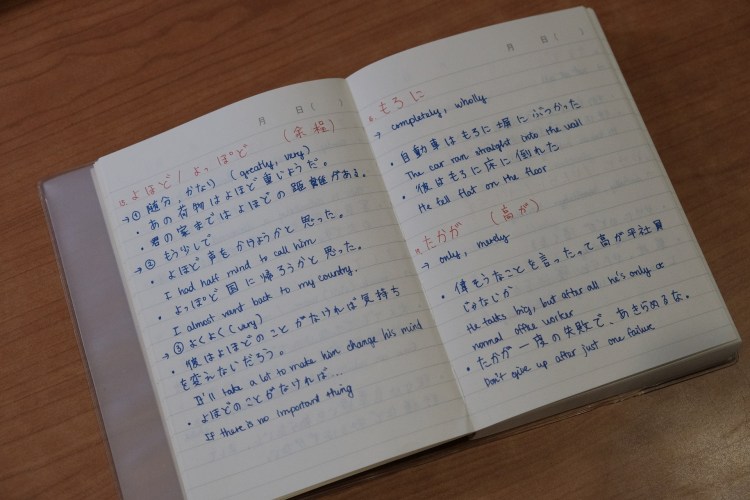 月 日 ( )
12. よほど / よっぽど (余程)
→ ① 随分, かなり (greatly, very)
• あの荷物はよほど重いようだ。
• 君の家まではよほどの距離がある。
→ ② もう少しで
• よほど声をかけようかと思った。
I had half mind to call him
• よっぽど国に帰ろうかと思った。
I almost went back to my country.
→ ③ よくよく (very)
• 彼はよほどのことがなければ気持ち
を変えないだろう。
It'll take a lot to make him change his mind
• よほどのことがなければ...
If there is no important thing
月 日 ( )
もろに
→ completely, wholly
• 自動車はもろに塀にぶつかった
The car ran straight into the wall
• 彼はもろに床に倒れた
He fell flat on the floor
たかが (高が)
→ only, merely
• 偉そうなことを言ったって高が平社員
じゃないか
He talks big, but after all he's only a
normal office worker
• たかが一度の失敗で、あきらめるな。
Don't give up after just one failure